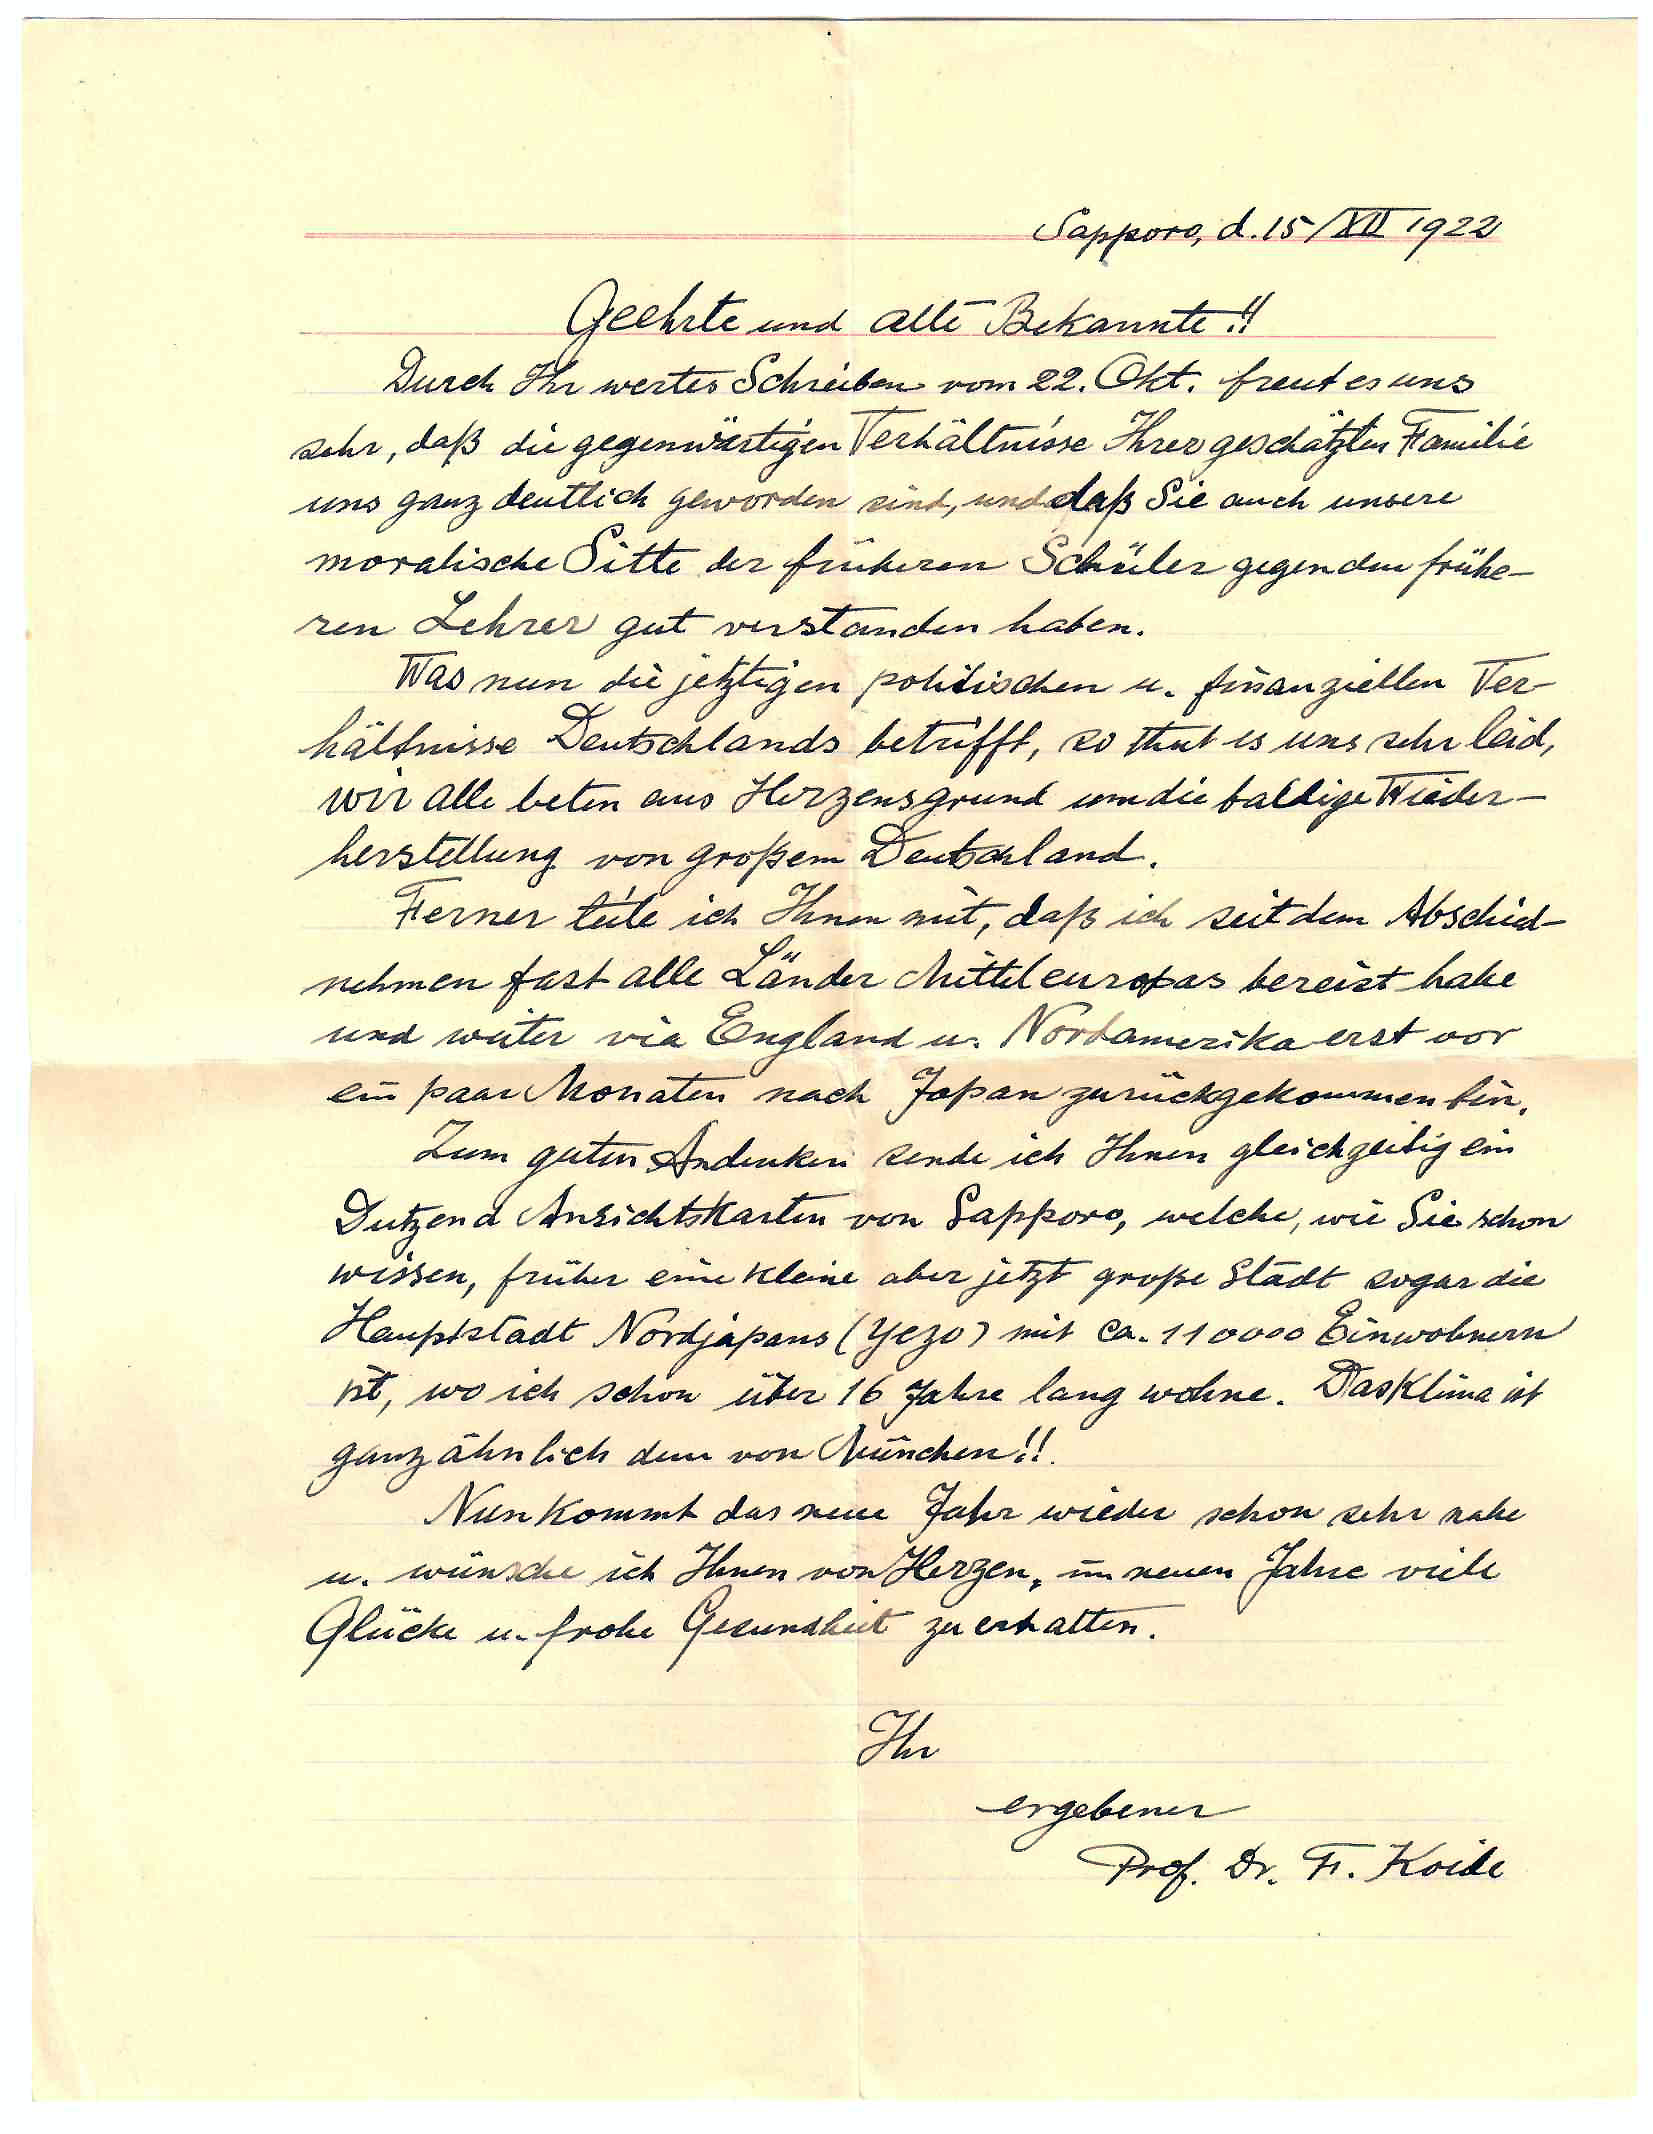 Sapporo, d. 15/XII 1922
Geehrte und alte Bekannte!!
Durch Ihr wertes Schreiben vom 22. Okt. freut es uns
sehr, daß die gegenwärtigen Verhältnisse Ihrer geschätzten Familie
uns ganz deutlich geworden sind, und daß Sie auch unsere
moralische Sitte der früheren Schüler gegen den frühe-
ren Lehrer gut verstanden haben.
Was nun die jetztigen politischen u. finanziellen Ver-
hältnisse Deutschlands betrifft, so thut es uns sehr leid,
wir alle beten aus Herzensgrund um die baldige Wieder-
herstellung von großem Deutschland.
Ferner teile ich Ihnen mit, daß ich seit dem Abschied-
nehmen fast alle Länder Mitteleuropas bereist habe
und weiter via England u. Nordamerika erst vor
ein paar Monaten nach Japan zurückgekommen bin.
Zum guten Andenken sende ich Ihnen gleichzeitig ein
Dutzend Ansichtskarten von Sapporo, welche, wie Sie schon
wissen, früher eine kleine aber jetzt große Stadt sogar die
Hauptstadt Nordjapans (Yezo) mit ca. 110000 Einwohnern
ist, wo ich schon über 16 Jahre lang wohne. Das Klima ist
ganz ähnlich dem von München!!.
Nun kommt das neue Jahr wieder schon sehr nahe
u. wünsche ich Ihnen von Herzen, im neuen Jahre viele
Glücke u. frohe Gesundheit zu erhalten.
Ihr
ergebener
Prof. Dr. F. Koide